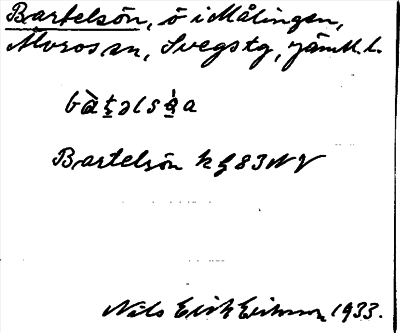 Bartelsön, ö i Målingen,
Moros sn, Svegs tg, Jämtl. l.
bàt̠əlsə̠̀a
Bartelsön k g 83 NV
Nils Erik Eriksson 1933.